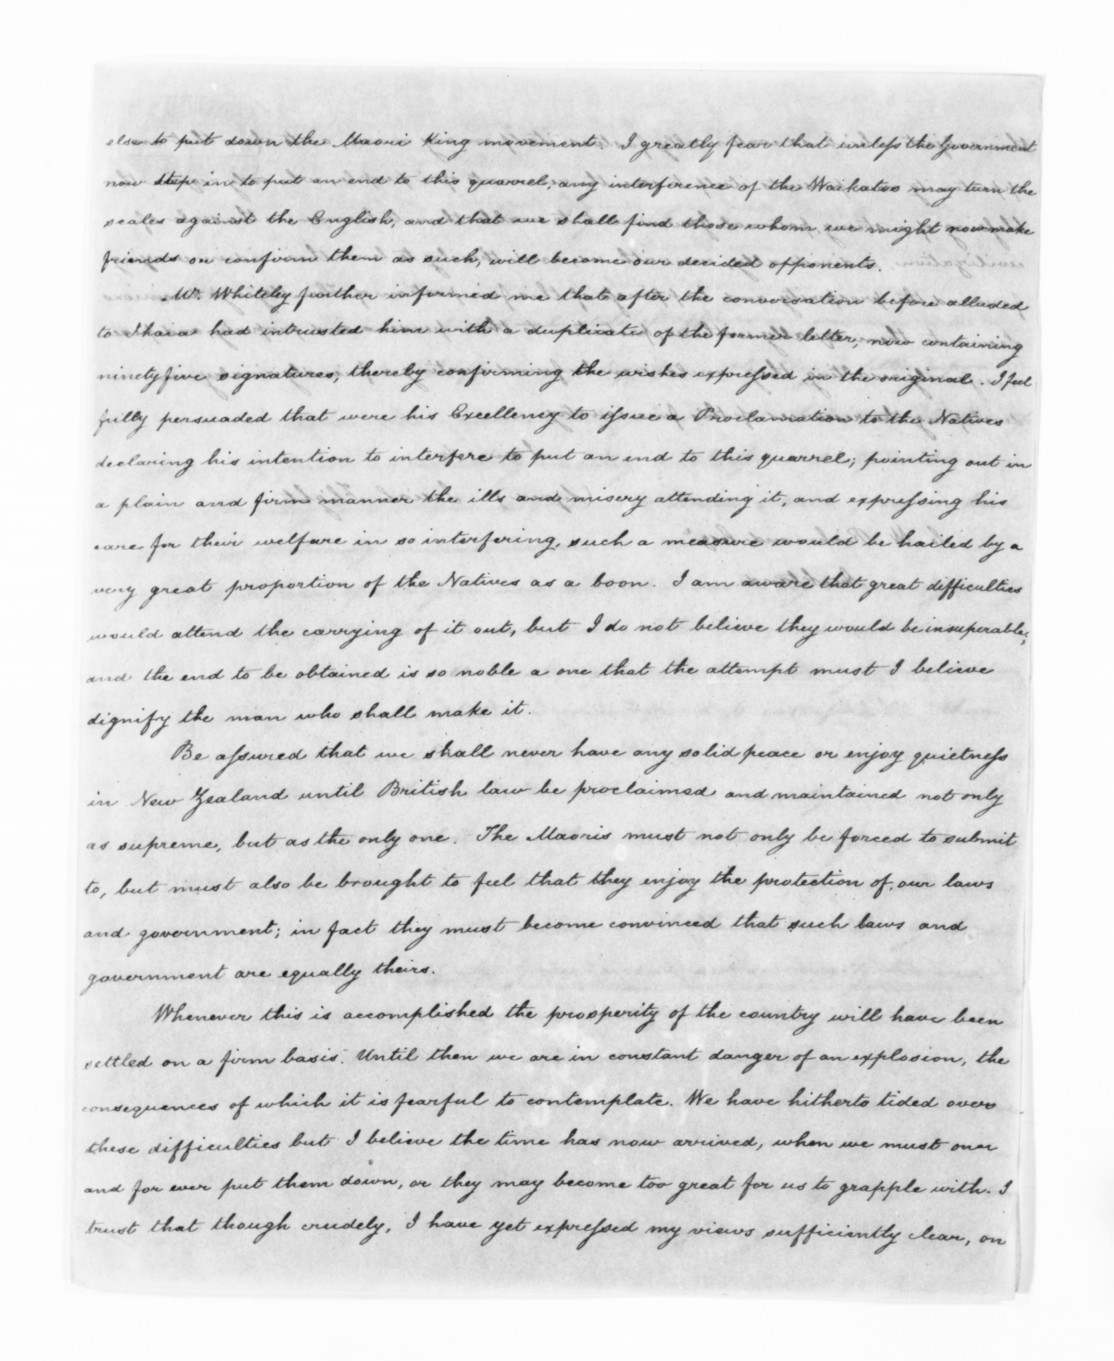 else to put down the Maori King movement. I greatly fear that unless the Government
now step in to put an end to this quarrel, any interference of the Waikatos may turn the
scales against the English, and that we shall find those whom we might now make
friends or confirm them as such, will become our decided opponents.
Mr. Whiteley further informed me that after the conversation before alluded
to Ihaia had intrusted him with a duplicate of the former letter, now containing
ninety five signatures, thereby confirming the wishes expressed in the original. I feel
fully persuaded that were his Excellency to issue a Proclamation to the Natives
declaring his intention to interfere to put an end to this quarrel; pointing out in
a plain and firm manner the ills and misery attending it, and expressing his
care for their welfare in so interfering, such a measure would be hailed by a
very great proportion of the Natives as a boon. I am aware that great difficulties
would attend the carrying of it out, but I do not believe they would be insuperable;
and the end to be obtained is so noble a one that the attempt must I believe
dignify the man who shall make it.
Be assured that we shall never have any solid peace or enjoy quietness
in New Zealand until British law be proclaimed and maintained not only
as supreme, but as the only one. The Maoris must not only be forced to submit
to, but must also be brought to feel that they enjoy the protection of our laws
and government; in fact they must become convinced that such laws and
government are equally theirs.
Whenever this is accomplished the prosperity of the country will have been
settled on a firm basis. Until then we are in constant danger of an explosion, the
consequences of which it is fearful to contemplate. We have hitherto tided over
these difficulties but I believe the time has now arrived, when we must once
and for ever put them down, or they may become too great for us to grapple with. I
trust that though crudely, I have yet expressed my views sufficiently clear, on